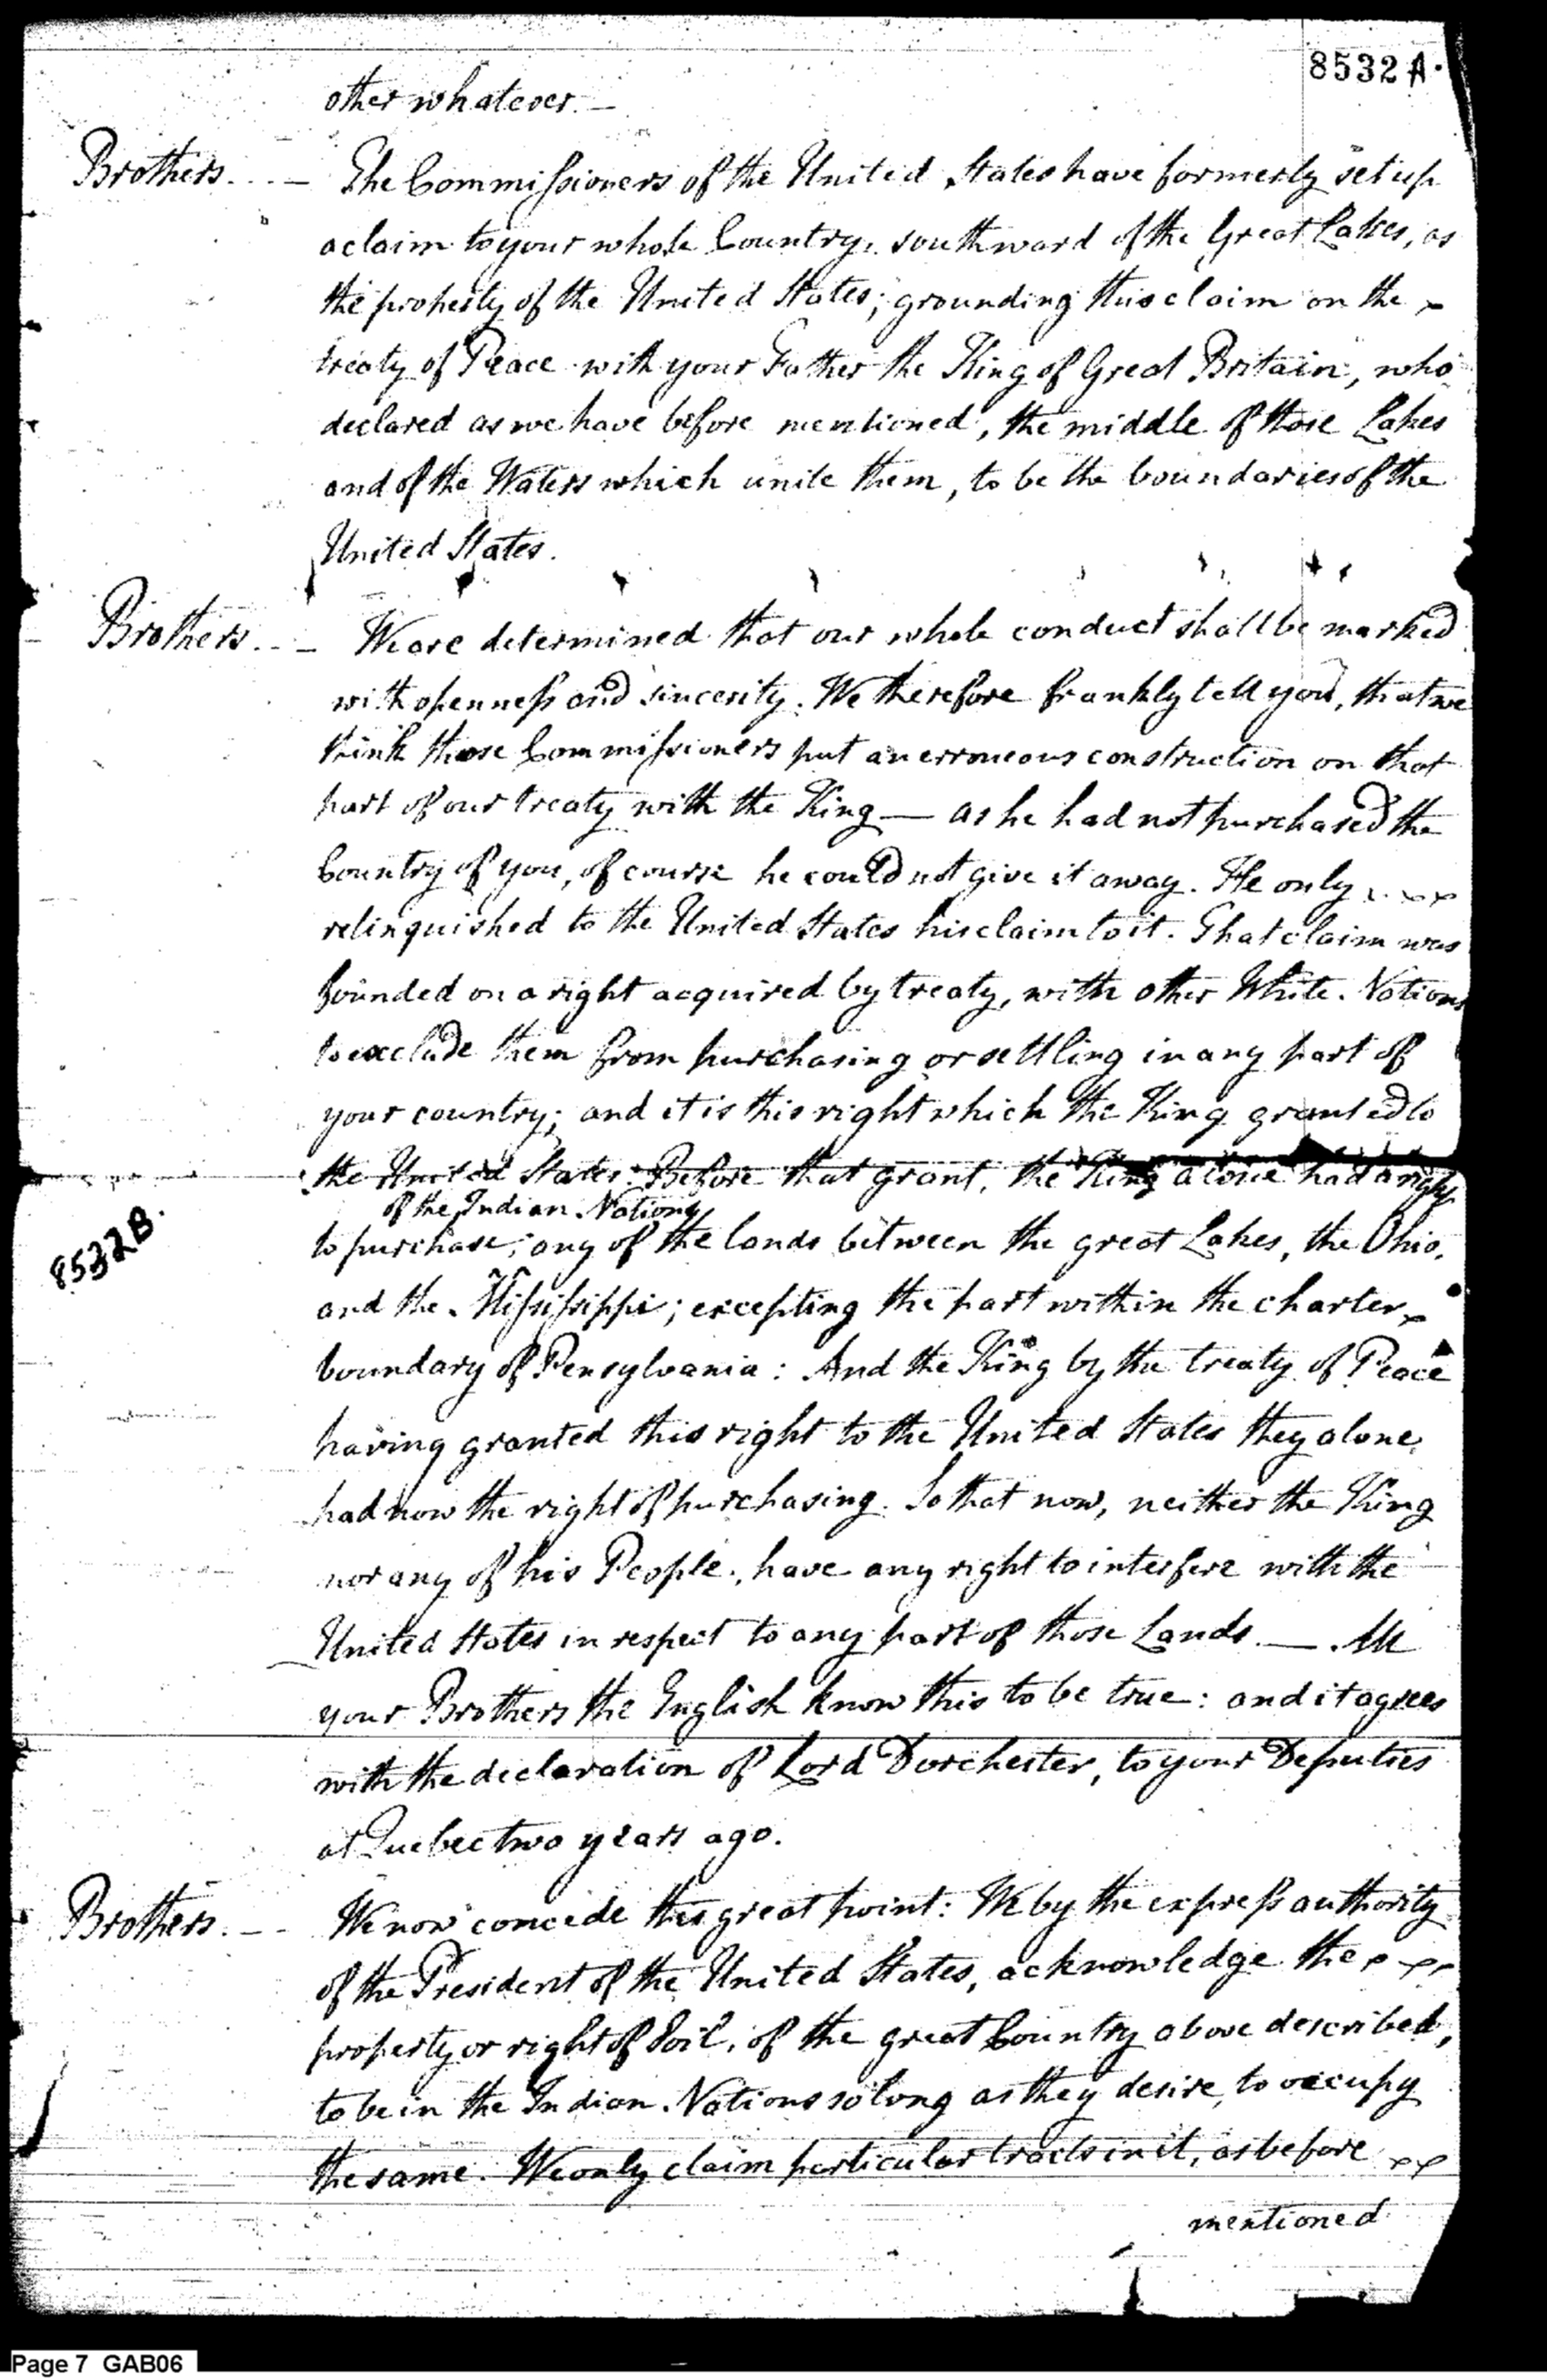 8532 A.
other whatever. —
Brothers. .. — The Commissioners of the United States have formerly set up
a claim to your whole Country, southward of the Great Lakes, as
the property of the United States; grounding this claim on the
treaty of Peace with your Father the King of Great Britain, who
declared as we have before mentioned, the middle of those Lakes
and of the Waters which unite them, to be the boundaries of the
United States.
Brothers. .. — We are determined that our whole conduct shall be marked
with openness and sincerity. We therefore frankly tell you, that we
think those Commissioners put an erroneous construction on that
part of our treaty with the King — as he had not purchased the
Country of you, of course he could not give it away. He only
relinquished to the United States his claim to it. That claim was
founded on a right acquired by treaty, with other White Nations
to exclude them from purchasing or settling in any part of
your country; and it is this right which the King granted to
the United States. Before that grant, the King alone had a right
of the Indian Nations
to purchase; any of the lands between the great Lakes, the Ohio,
and the Missisippi; excepting the part within the charter
8532B.
boundary of Pensylvania: And the King by the treaty of Peace
having granted this right to the United States they alone,
had now the right of purchasing. So that now, neither the King
nor any of his People, have any right to interfere with the
United States in respect to any part of those Lands. — All
your Brothers the English know this to be true: and it agrees
with the declaration of Lord Dorchester, to your Deputies
at Quebec two years ago.
Brothers. — We now concede this great point: We by the express authority
of the President of the United States, acknowledge the
property or right of Soil, of the great Country above described,
to be in the Indian Nations so long as they desire, to occupy
the same. We only claim particular tracts in it, as before
mentioned
Page 7 GAB06